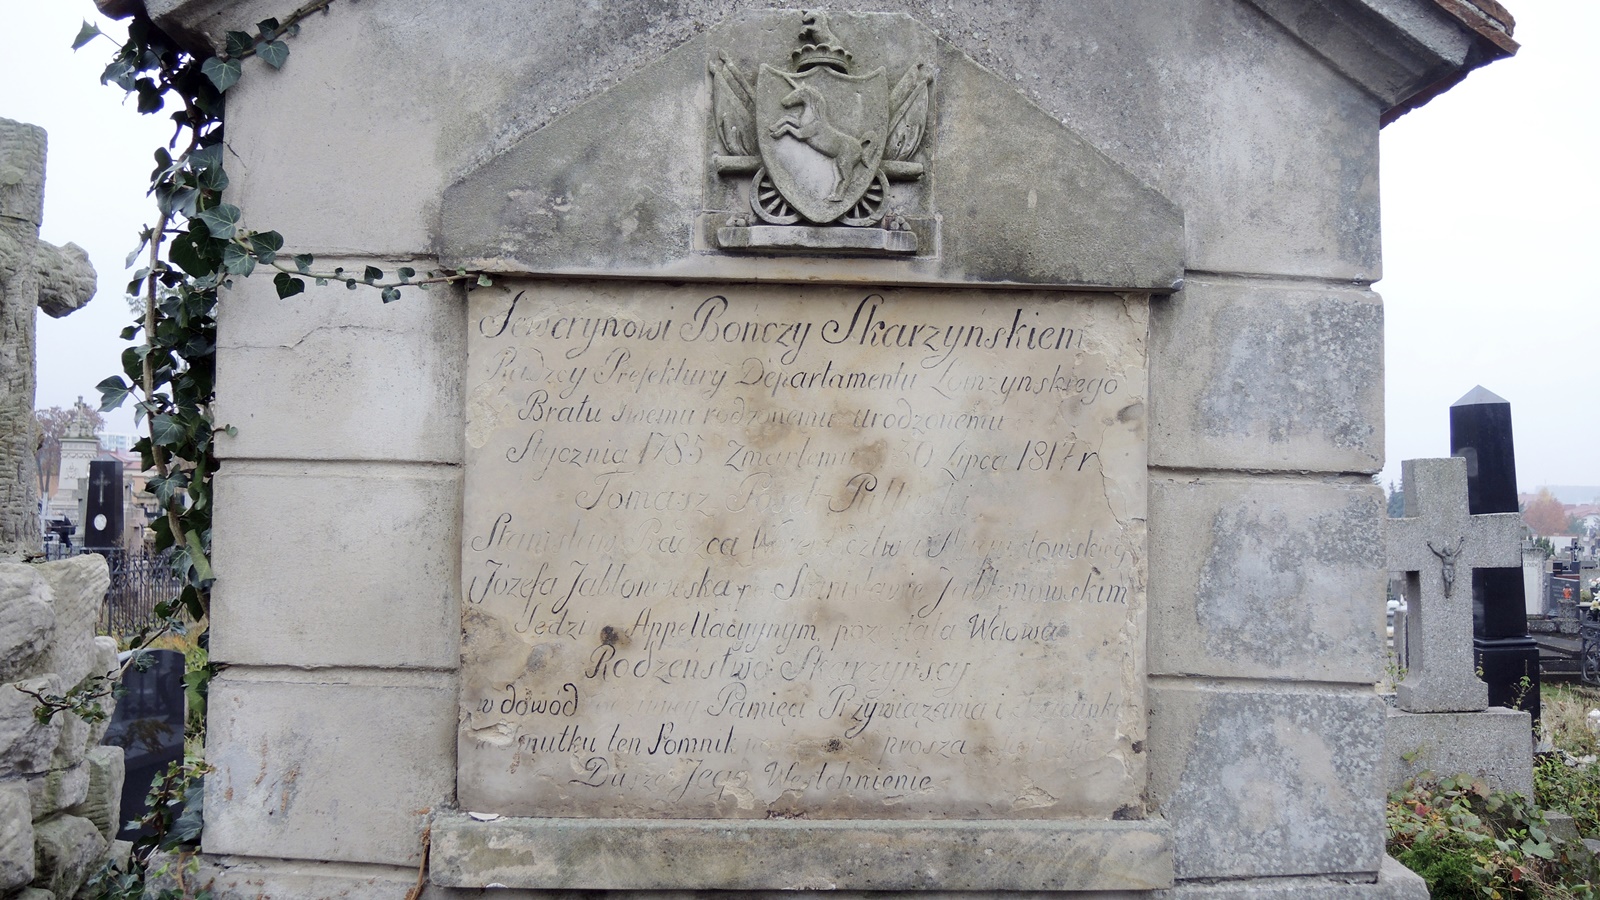 Sewerynowi Bończy Skarzyńskiem
Radzcy Prefektury Departamentu Łomzynskiego
Bratu swemu rodzonemu urodzonemu
Stycznia 1785 Zmarłemu 30 Lipca 1817 r
Tomasz Józef
Stanisław Radzca
i Józefa Jabłonowska po Stanisławie Jabłonowskim
Sędzim Appellacyynym pozostała Wdowa
Rodzeństwo Skarzyńscy
w dowód Pamięci Przywiązania i
smutku ten Pomnik prosza
Duszę Jego Westchnienie